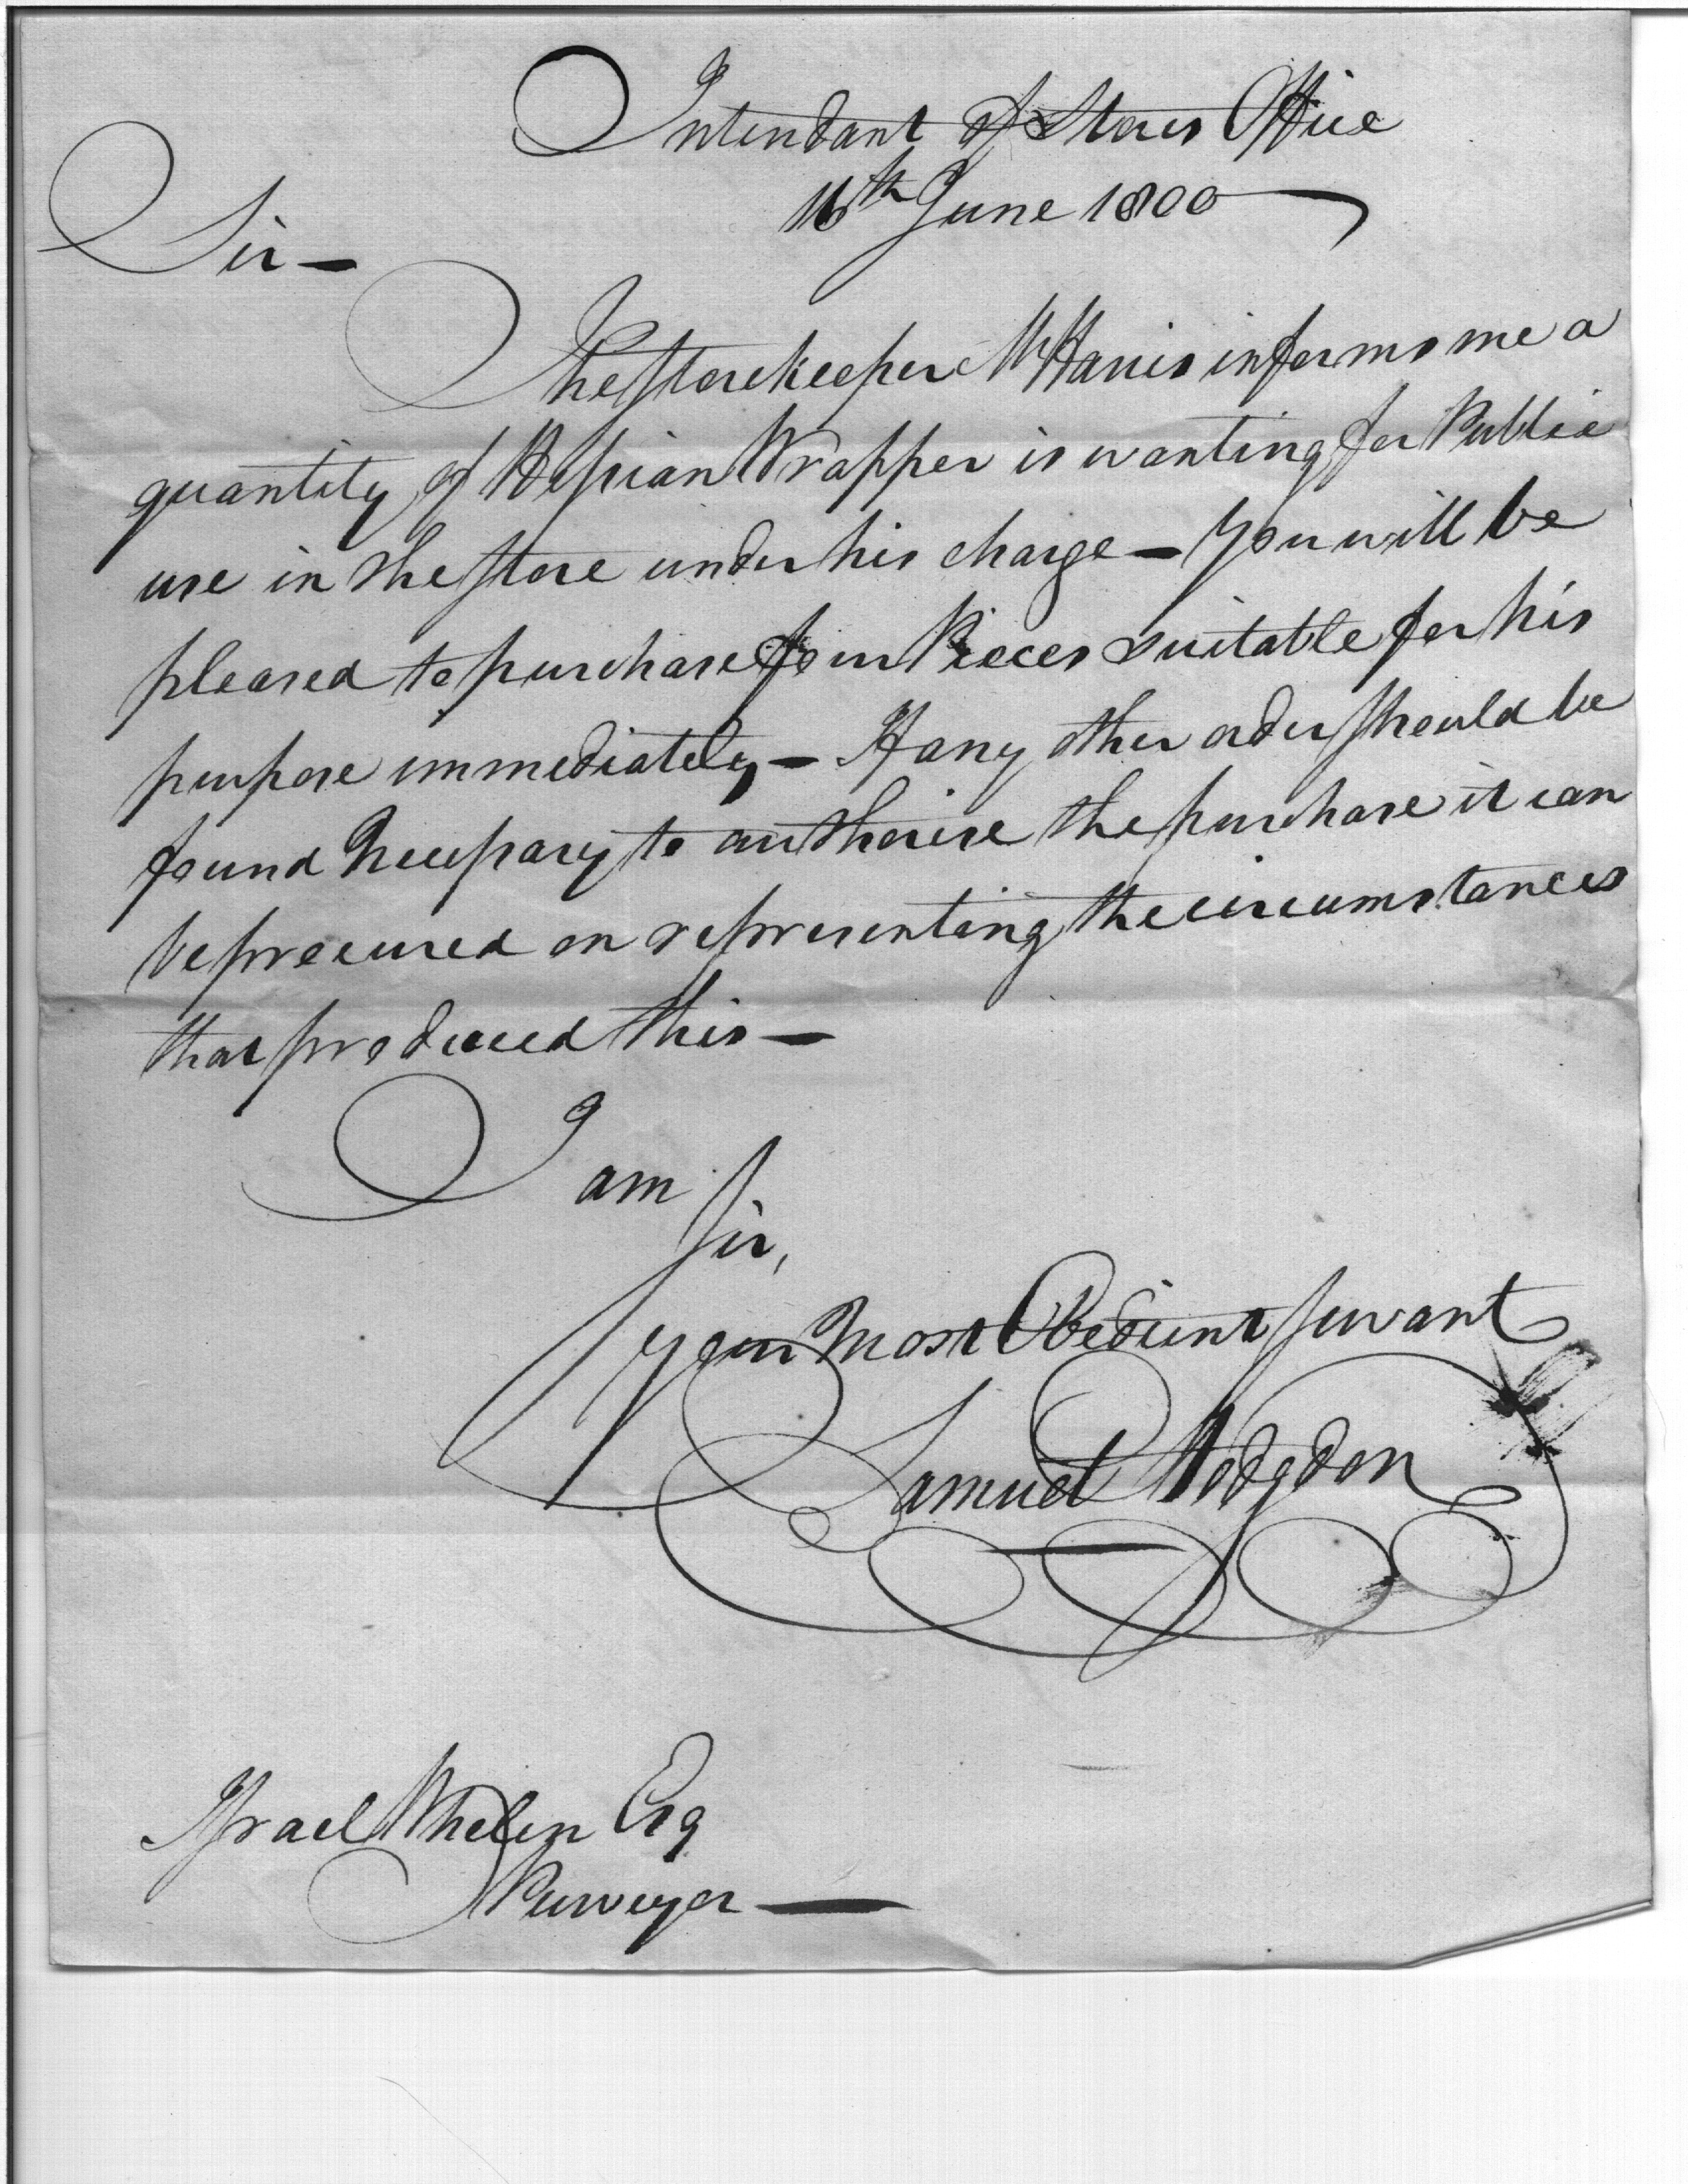 Intendant of Stores Office
16th June 1800
Sir—
The Storekeeper Mr Harris informs me a
quantity of Hessian Wrapper is wanting for Public
use in the store under his charge — You will be
pleased to purchase four Pieces suitable for his
purpose immediately — If any other order should be
found Necessary to authorise the purchase it can
be procured on representing the circumstances
that produced this —
I am
Sir,
Your Most Obedient Servant
Samuel Hodgdon
Israel Whelen Esq
Purveyor —